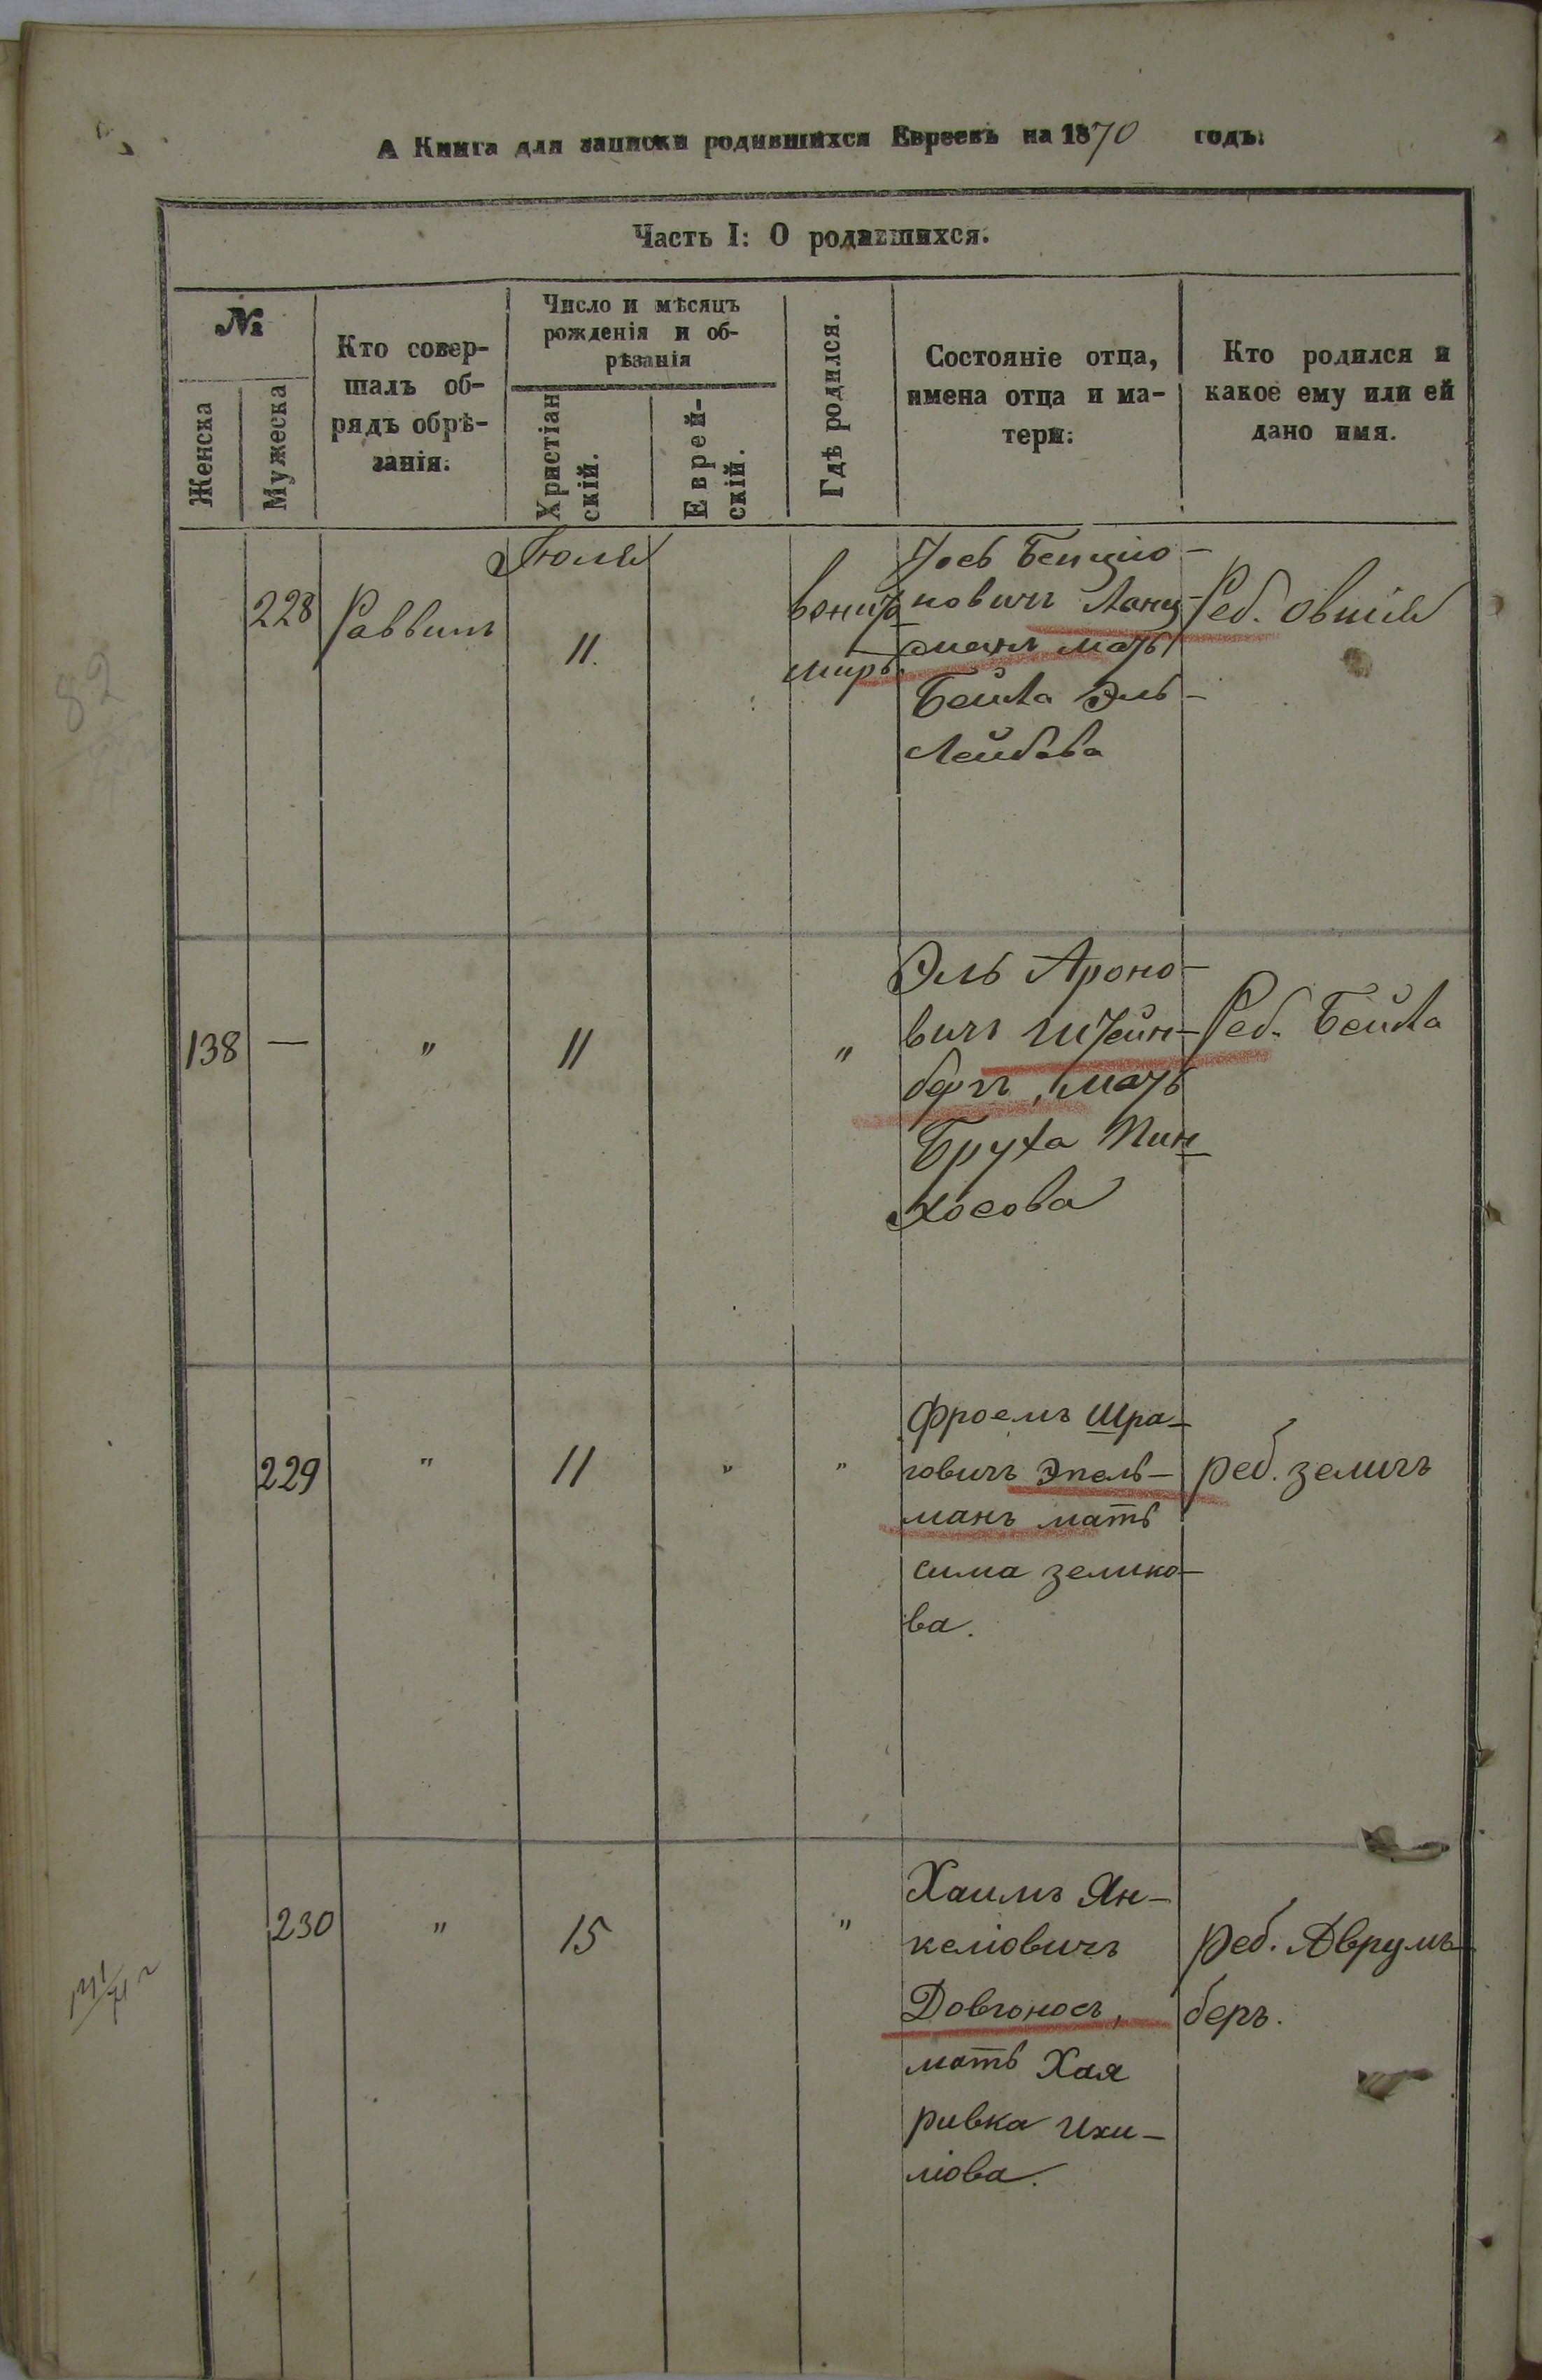 А Книга для записки родившихся Евреевъ на 1870 годъ.
Часть I: О родившихся.
№
Женска
Мужеска
Кто совер-
шалъ об-
рядъ обрѣ-
занія.
Число и мѣсяцъ
рожденія и об-
рѣзанія
Христіан
скій.
Еврей-
скій.
Гдѣ родился.
Состояніе отца,
имена отца и ма-
тери.
Кто родился и
какое ему или ей
дано имя.
Іюля
228 Раввинъ 11.
Бенціо-
новичъ Ланц-
манъ мать
Бейла Эль-
Лейбова
Реб. Овшія
138 — " 11 "
Эль Ароно-
вичъ Штейн-
бергъ, мать
Бруха Пин-
хосова
Реб. Бейла
229 " 11 " "
Фроемъ Шра-
говичъ Эпель-
манъ мать
сима зелико-
ва.
реб. зелигъ
230 " 15 "
Хаимъ Ян-
келіовичъ
Довгоносъ,
мать Хая
ривка Ихи-
ліова.
реб. Аврумъ-
беръ.
82